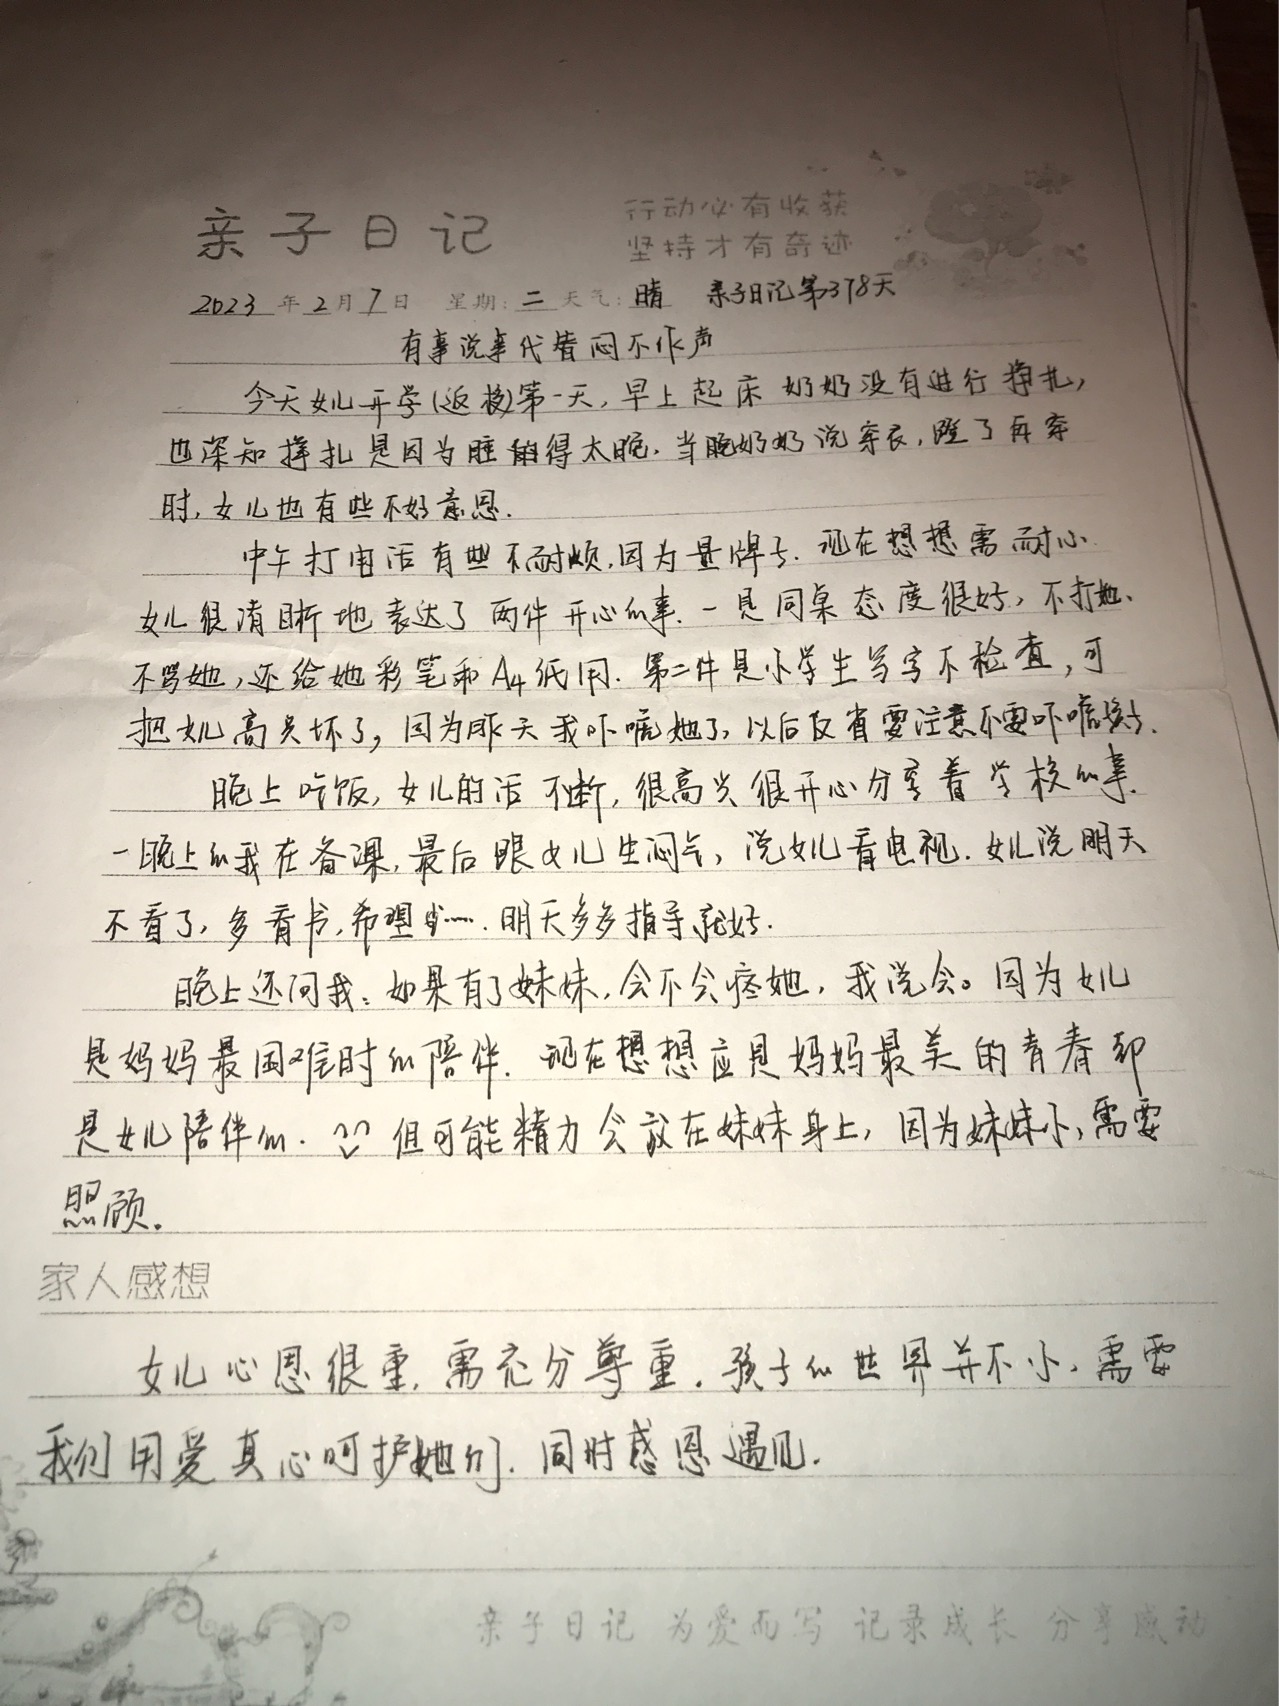 亲子日记
行动必有收获
坚持才有奇迹
2023年2月7日 星期:二 天气:晴 亲子日记第378天
有事说事代替闷不作声
今天女儿开学(返校)第一天,早上起床奶奶没有进行挣扎,
也深知挣扎是因为睡的得太晚.当晚奶奶说穿衣,睡了再穿
时,女儿也有些不好意思.
中午打电话有些不耐烦,因为量牌子.现在想想需耐心.
女儿很清晰地表达了两件开心的事.一是同桌态度很好,不打她、
不骂她,还给她彩笔和A4纸用.第二件是小学生写字不检查,可
把女儿高兴坏了,因为昨天我吓唬她了,以后反省要注意不要吓唬孩子.
晚上吃饭,女儿的话不断,很高兴很开心分享着学校的事.
一晚上的我在备课,最后跟女儿生闷气,说女儿看电视.女儿说明天
不看了,多看书,希望.....明天多多指导就好.
晚上还问我:如果有了妹妹,会不会疼她,我说会。因为女儿
是妈妈最困难时的陪伴.现在想想应是妈妈最美的青春却
是女儿陪伴的.但可能精力会放在妹妹身上,因为妹妹小,需要
照顾.
家人感想
女儿心思很重,需充分尊重.孩子的世界并不小,需要
我们用爱真心呵护她们.同时感恩遇见.
亲子日记 为爱而写 记录成长 分享感动